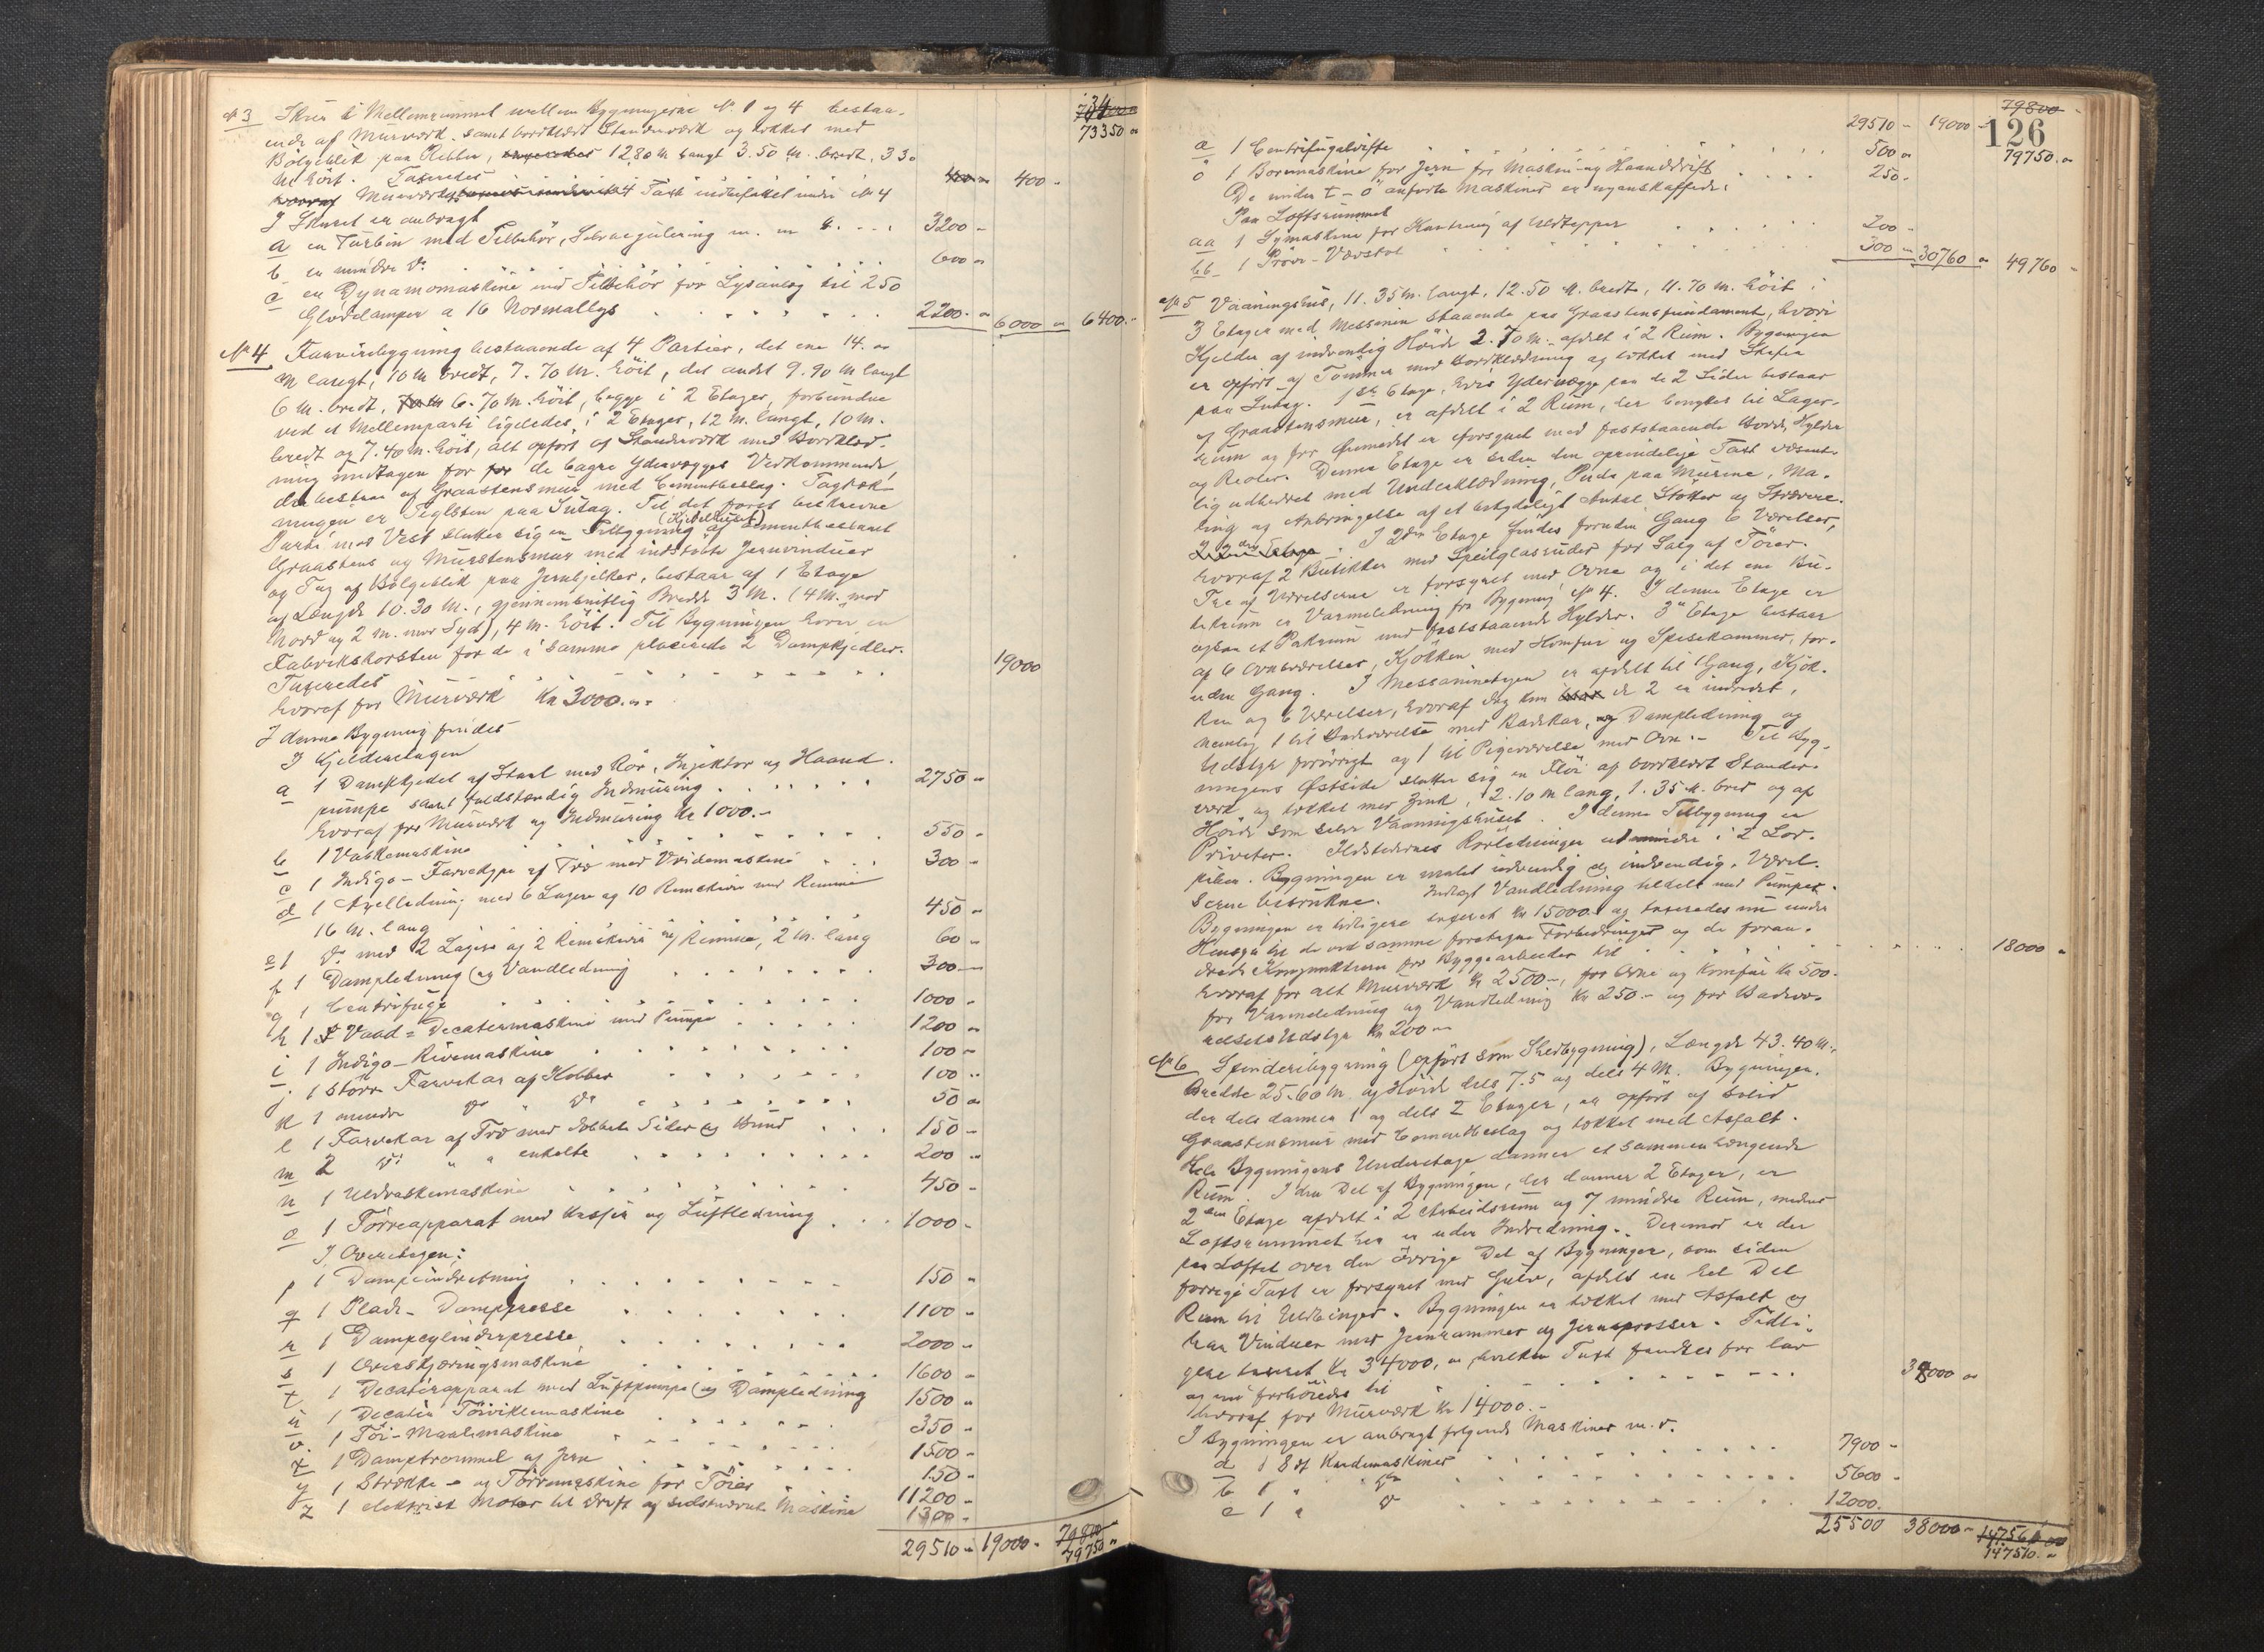 734
73350 "
No 3 Skur i Mellemrummet mellem Bygningerne No. 1 og 4 bestaa-
ende af Murværk samt bordklædt Stænderværk og tækket med
Bölgeblik paa Ribber, 12.80 m. langt 3.50 M. bredt, 3.30
M. höit. Taxeredes 400 "
hvoraf Murværk Taxt indbefattet under No 4
I Skuret er anbragt
a en Turbin med Tilbehör, Selvregulering m. m 3200 "
b en mindre do 600 "
c en Dynamomaskine med Tilbehör for Lysanlæg til 250
Glödelamper a 16 Normallys 2200 " 6000 " 6400 "
No 4 Farveribygning bestaaende af 4 Partier, det ene 14.
M langt, 10 M bredt, 7.70 M. höit, det andet 9.90 M langt
6 M. bredt, 6.70 M. höit, begge i 2 Etager, forbundne
ved et Mellemparti ligeledes i 2 Etager, 12 M. langt, 10 M.
bredt og 7.40 M. höit, alt opfört af Stænderværk med Bordklæd-
ning undtagen for de bagre Ydervægges Vedkommende,
der bestaar af Graastensmur med Cementbeslag. Tagtæk-
ningen er Teglsten paa Sutag. Til det först beskrevne
(Kjedelhuset)
Parti mod Vest slutter sig en Tilbygning af cementbeslaaet
Graastens og Murstensmur med indstöbte Jernvinduer
og Tag af Bölgeblik paa Jernbjelker, bestaar af 1 Etage
af Længde 10.30 M., gjennemsnitlig Bredde 3 M. (4 M. mod
Nord og 2 M. mod Syd), 4 M. höit. Til Bygningen hörer en
Fabrikskorsten for de i samme placerede 2 Dampkjedler.
Taxeredes 19000
hvoraf for Murværk Kr 3000 "
I denne Bygning findes
I Kjelderetagen
a 1 Dampkjedel af Staal med Rör, Injektor og Haand-
pumpe samt fuldstændig Indmuring 2750 "
hvoraf for Murværk og Indmuring Kr 1000.-
b 1 Vaskemaskine 550 "
c 1 Indigo-Farvekype af Træ med Vridemaskine 300 "
d 1 Axelledning med 6 Lagere og 10 Remskiver med Remme
16 M. lang 450 "
e 1 do med 2 Lagere og 2 Remskiver og Remme, 2 M. lang 60 "
f 1 Dampledning og Vandledning 300 "
g 1 Centrifuge 1000 "
h 1 Vaad-Decatermaskine med Pumpe 1200 "
i 1 Indigo-Rivemaskine 100 "
j 1 större Farvekar af Kobber 100 "
k 1 mindre do " do 50 "
l 1 Farvekar af Træ med dobbelte Sider og Bund 150 "
m 2 do " " enkelte 200 "
n 1 Uldvaskemaskine 450 "
o 1 Törreapparat med Kasser og Luftledning 1000 "
I Overetagen:
p 1 Dampindretning 150 "
q 1 Plade-Damppresse 1100 "
r 1 Dampcylinderpresse 2000 "
s 1 Overskjæringsmaskine 1600 "
t 1 Decaterapparat med Luftpumpe og Dampledning 1500 "
u 1 Decater Töiviklemaskine 350 "
v 1 Töi-Maalemaskine 1500 "
x 1 Damptrommel af Jern 150 "
y 1 Strække- og Törremaskine for Töier 11200 "
z 1 elektrisk Motor til Drift af sidstnævnte Maskine 1300 "
29510 " 19000 " 79800
79750 "
79800
29510 " 19000 " 126
79750 "
æ 1 Centrifugalvifte 500 "
ö 1 Boremaskine for Jern for Maskin- og Haanddrift 250 "
De under t - ö anförte Maskiner er nyanskaffede.
Paa Loftsrummet
aa 1 Symaskine for Kantning af Uldtepper 200 "
bb 1 Pröve-Vævstol 300 " 30760 " 49760 "
No 5 Vaaningshus, 11.35 M. langt, 12.50 M. bredt, 11.70 M. höit i
3 Etager med Messanin staaende paa Graastensfundament, hvori
Kjelder af indvendig Höide 2.70 M. afdelt i 2 Rum. Bygningen
er opfört af Tömmer med Bordklædning og tækket med Skifer
paa Sutag. 1ste Etage, hvis Ydervægge paa de 2 Sider bestaar
af Graastensmur, er afdelt i 2 Rum, der benyttes til Lager-
rum og for Öiemedet er forsynet med faststaaende Borde, Hylder
og Reoler. Denne Etage er siden den oprindelige Taxt væsent-
lig udbedret med Underklædning, Puds paa Murene, Ma-
ling og Anbringelse af et betydeligt Antal Stötter og Strævere.
I 2den Etage findes foruden Gang 6 Værelser,
hvoraf 2 Butikker med Speilglasruder for Salg af Töier.
Tre af Værelserne er forsynet med Ovne og i det ene Bu-
tikrum er Varmeledning fra Bygning No 4. I denne Etage er
ogsaa et Pakrum med faststaaende Hylder. 3die Etage bestaar
af 6 Ovnsværelser, Kjökken med Komfur og Spisekammer, for-
uden Gang. I Messaninetagen er afdelt til Gang, Kjök-
ken og 6 Værelser, hvoraf dog kun de 2 er indredet,
nemlig 1 til Badeværelse med Badekar, Dampledning og
Udstyr forövrigt og 1 til Pigeværelse med Ovn.- Til Byg-
ningens Östside slutter sig en Flöi af bordklædt Stænder-
værk og tækket med Zink, 2.10 M lang, 1.35 M. bred og af
Höide som selve Vaaningshuset. I denne Tilbygning er
Priveter. Ildstedernes Rörledninger udmunder i 2 Lov-
piber. Bygningen er malet udvendig og indvendig, Værel-
serne betrukne. Indlagt Vandledning tildels med Pumper.
Bygningen er tidligere taxeret Kr 15000 og taxeredes nu under
Hensyn til de ved samme foretagne Forbedringer og de foran-
drede Konjunkturer for Byggearbeider til 18000 "
hvoraf for alt Murværk Kr 2500-, for Ovne og Komfur Kr 500-
for Varmeledning og Vandledning Kr 250.- og for Badevæ-
relsets Udstyr Kr 200 "
No 6 Spinderibygning (opfört som Shedbygning), Længde 43.40 M.,
Bredde 25.60 M og Höide dels 7.5 og dels 4 M. Bygningen,
der dels danner 1 og dels 2 Etager, er opfört af solid
Graastensmur med Cementbeslag og tækket med Asfalt.
Hele Bygningens Underetage danner et sammenhængende
Rum. I den Del af Bygningen, der danner 2 Etager, er
2den Etage afdelt i 2 Arbeidsrum og 7 mindre Rum, medens
Loftsrummet her er uden Indredning. Derimod er der
paa Loftet over den övrige Del af Bygningen, som siden
forrige Taxt er forsynet med Gulv, afdelt en hel Del
Rum til Uldbinger. Bygningen er tækket med Asfalt og
har Vinduer med Jernrammer og Jernsprosser. Tidli-
gere taxeret Kr 34000, " hvilken Taxt fandtes for lav
og nu forhöiedes til 38000 "
hvoraf for Murværk Kr 14000.-
I Bygningen er anbragt fölgende Maskiner m.v.
a 1 Sæt Kardemaskiner 7900 "
b 1 " do 5600 "
c 1 " do 12000.
25500 38000 " 147560
147510 "